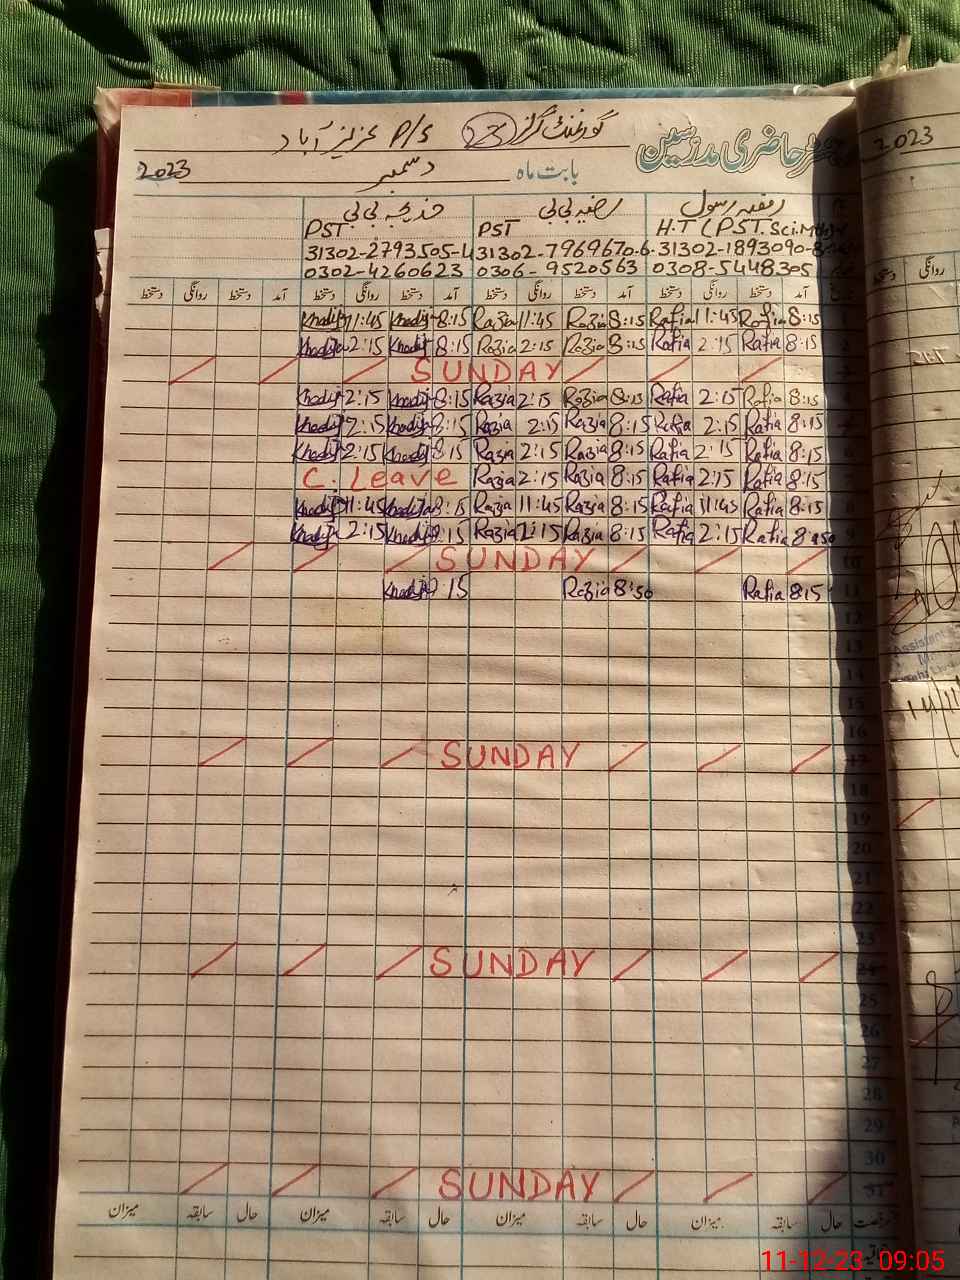 رجسٹر حاضری مدرسین گورنمنٹ گرلز P/S عزیز آباد
2023
بابت ماہ دسمبر 2023
رفعیہ رسول رضیہ بی بی خدیجہ بی بی
H.T (PST. Sci. PST PST
31302-1893090-8 31302-7969670-6 31302-2793505-4
0308-5448305 0306-9520563 0302-4260623
آمد دستخط روانگی دستخط آمد دستخط روانگی دستخط آمد دستخط روانگی دستخط آمد دستخط روانگی دستخط
Khadija 11:45 Khadija 8:15 Razia 11:45 Razia 8:15 Rafia 11:45 Rafia 8:15
Khadija 2:15 Khadija 8:15 Razia 2:15 Razia 8:15 Rafia 2:15 Rafia 8:15
SUNDAY
Khadija 2:15 Khadija 8:15 Razia 2:15 Razia 8:15 Rafia 2:15 Rafia 8:15
Khadija 2:15 Khadija 8:15 Razia 2:15 Razia 8:15 Rafia 2:15 Rafia 8:15
Khadija 2:15 Khadija 8:15 Razia 2:15 Razia 8:15 Rafia 2:15 Rafia 8:15 6
C. Leave Razia 2:15 Razia 8:15 Rafia 2:15 Rafia 8:15
Khadija 11:45 Khadija 8:15 Razia 11:45 Razia 8:15 Rafia 11:45 Rafia 8:15 8
Khadija 2:15 Khadija 8:15 Razia 2:15 Razia 8:15 Rafia 2:15 Rafia 9
SUNDAY 10
Khadija 15 Razia 8:50 Rafia 8:15 11
12
13
14
15
16
SUNDAY 17
18
19
20
21
22
23
SUNDAY 24
25
26
27
28
29
30
SUNDAY 31
حال سابقہ میزان حال سابقہ میزان حال سابقہ میزان حال سابقہ میزان
روانگی
Assistant
14/11
11-12-23 09:05